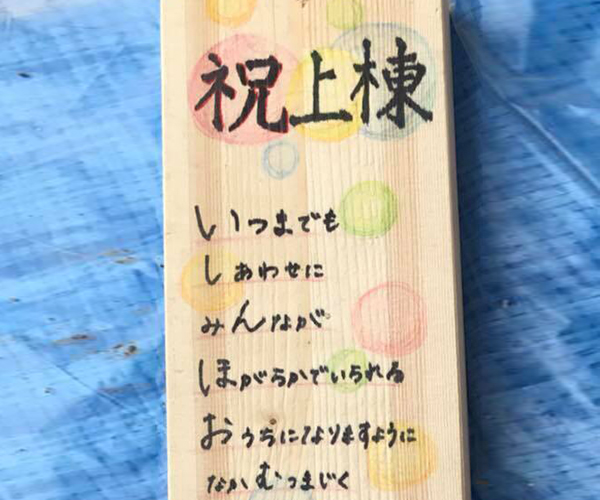 祝上棟
いつまでも
しあわせに
みんなが
ほがらかでいられる
おうちになりますように
なかむつまじく